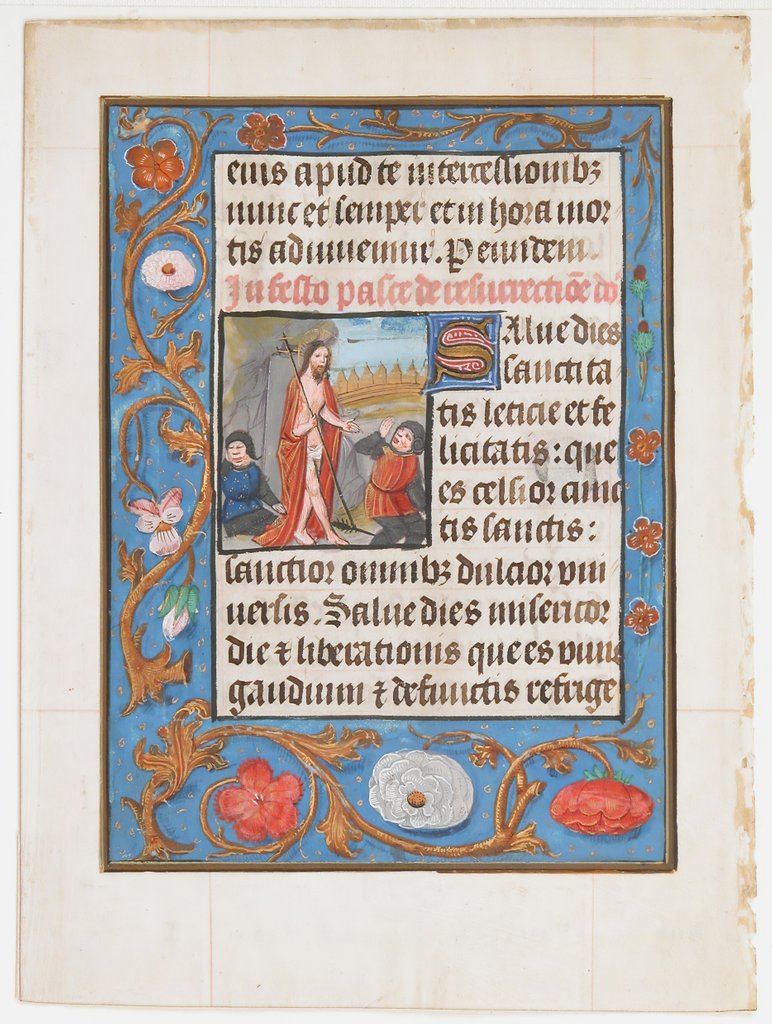 eius apud te intercessionibꝫ
nunc et semper et in hora mor
tis adiuuemur. Per eundem.
In festo pasce de resurrectiōe do
Salue dies
sanctita
tis leticie et fe
licitatis: que
es celsior cunc
tis sanctis:
sanctior omnibꝫ dulcior vni
uersis. Salue dies misericor
die ⁊ liberationis que es viuis
gaudium ⁊ defunctis refrige